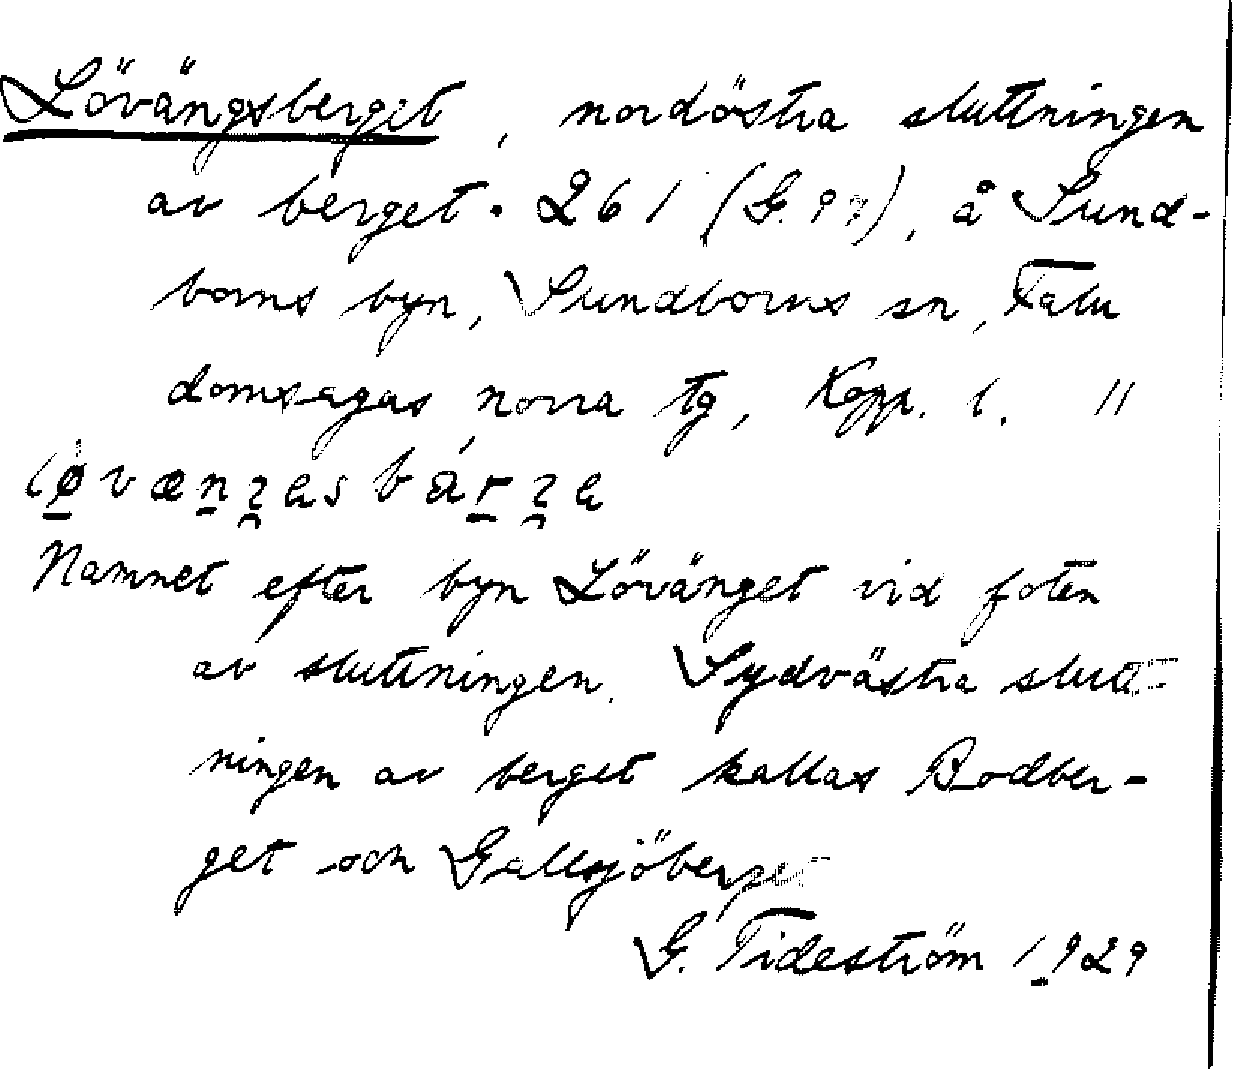 Lövängsberget, nordöstra sluttningen
av berget • 261 (G. 97), å Sund-
borns byn, Sundborns sn, Falu
domsagas norra tg, Kopp. l. //
Namnet efter byn Lövänget vid foten
av sluttningen. Sydvästra slutt-
ningen av berget kallas Bodber-
get och Gallsjöberget
G. Tideström 1929